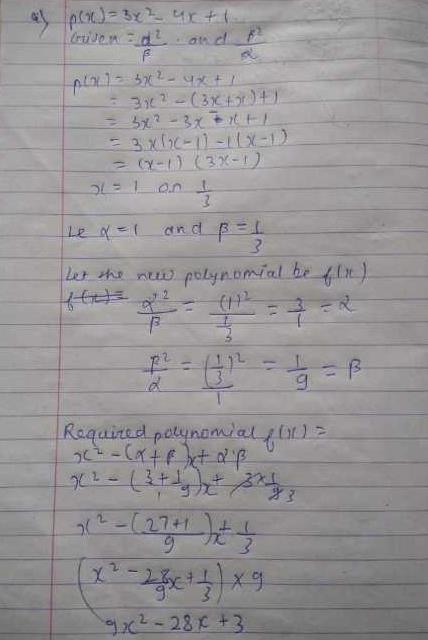 a) p(x) = 3x² - 4x + 1
Given = α²/β and β²/α
p(x) = 3x² - 4x + 1
= 3x² - (3x + x) + 1
= 3x² - 3x - x + 1
= 3x(x-1) - 1(x-1)
= (x-1) (3x-1)
x = 1 or 1/3
Le α = 1 and β = 1/3
Let the new polynomial be f(x)
f(x) = α²/β = (1)²/(1/3) = 3/1 = α
β²/α = (1/3)²/1 = 1/9 = β
Required polynomial f(x) =
x² - (α + β)x + α·β
x² - (3/1 + 1/9)x + 3 × 1/9 3
x² - (27+1/9)x + 1/3
(x² - 28/9 x + 1/3) × 9
9x² - 28x + 3